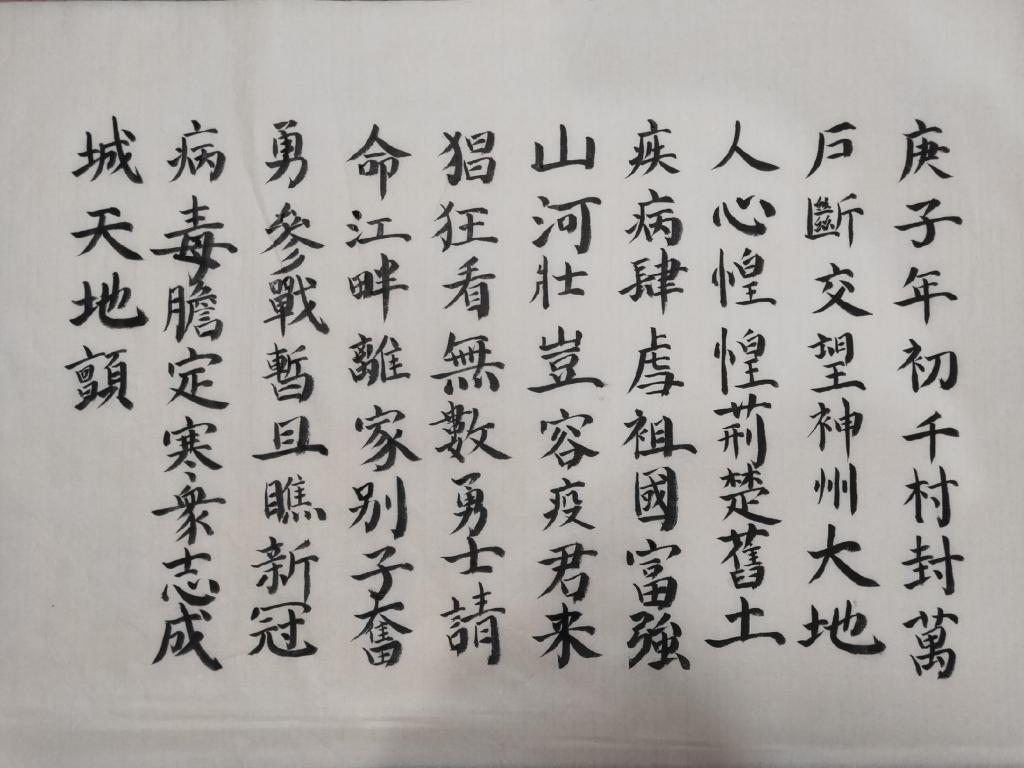 庚子年初千村封萬
戶斷交望神州大地
人心惶惶荊楚舊土
疾病肆虐祖國富強
山河壯豈容疫君来
猖狂看無數勇士請
命江畔離家别子奮
勇參戰暫且瞧新冠
病毒膽定寒衆志成
城天地顫